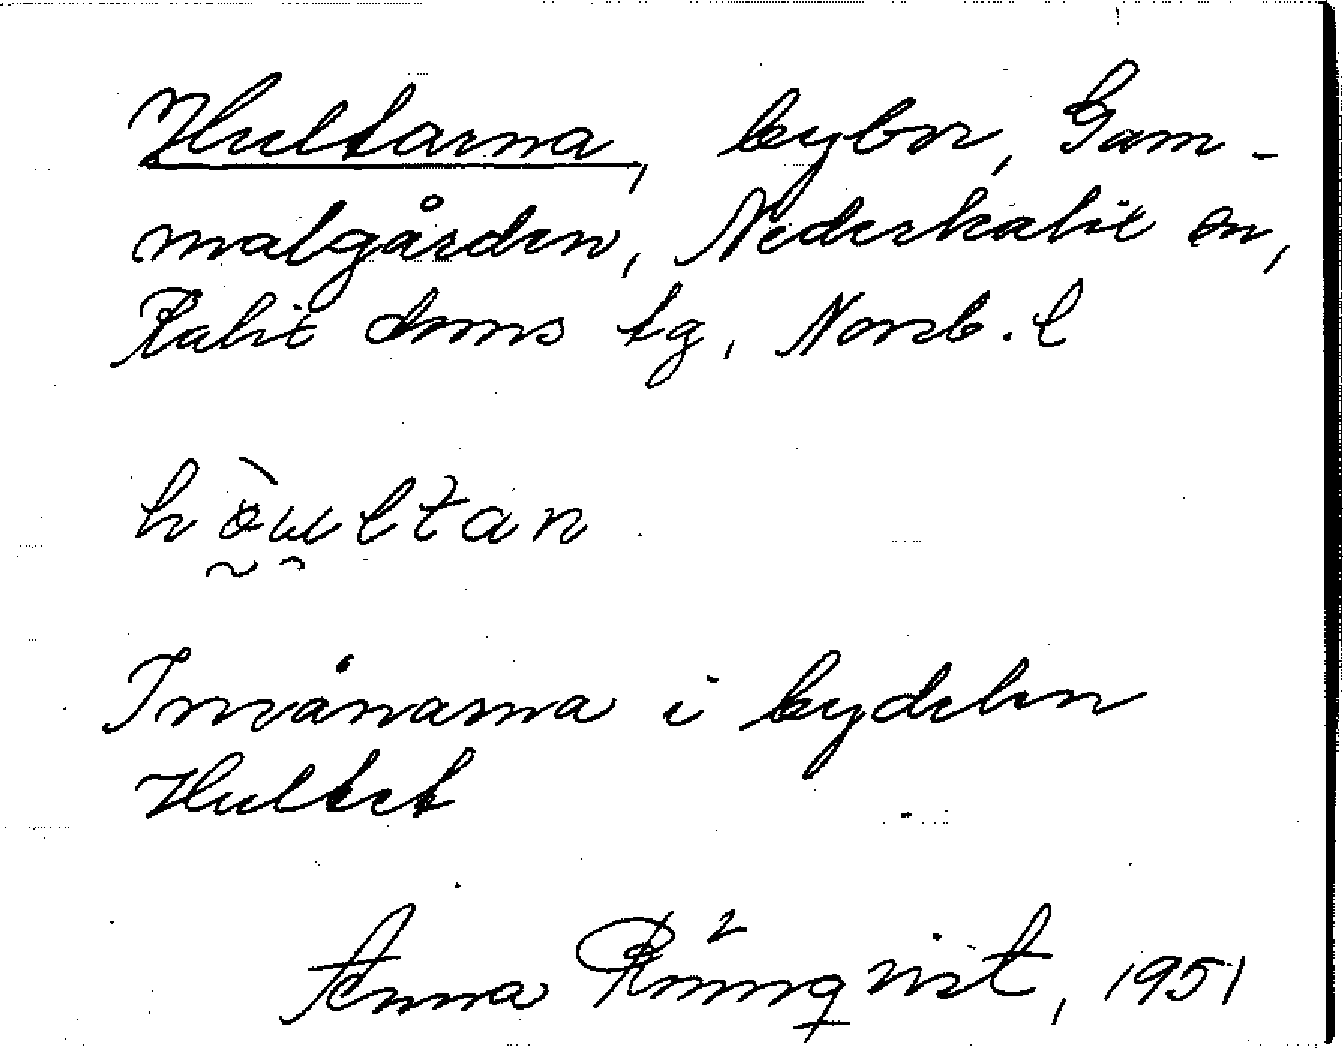 Hultarna, bybor, Gam-
malgården, Nederkalix sn,
Kalix doms tg, Norrb. l
Invånarna i bydelen
Hultet
Anna Rönnqvist, 1951